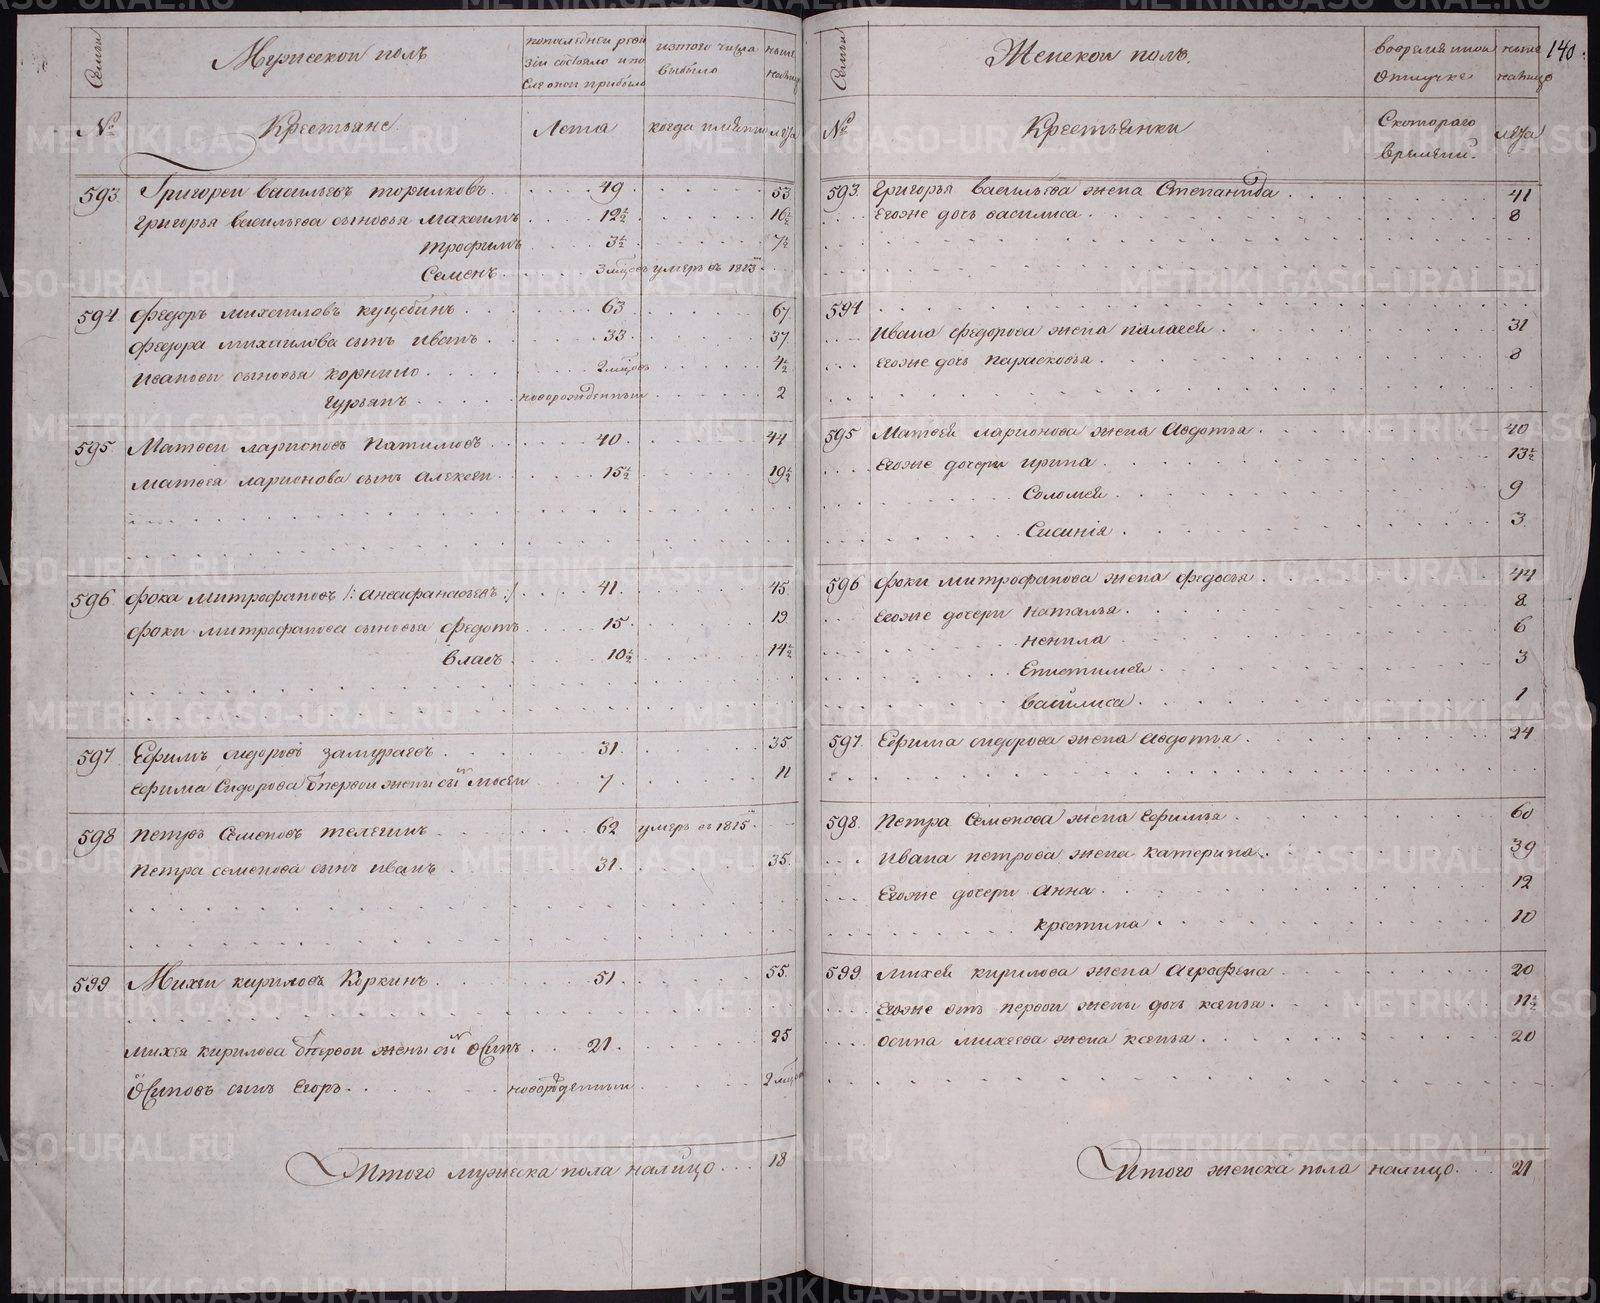 140.
Семьи
Мужескои полъ
попоследнеи реви
зіи состояло и по
сле онои прибыло
изтого числа
выбыло
ныне
налицо
№
Крестьяне.
Лета
когда имянно
лета
593. Григореи васильевъ торилковъ. 49 53
Григорья васильева сыновья Максимъ 12½ 16½
трофимъ 3½ 7½
Семенъ. 3 мцовъ умеръ въ 1813.
594. федоръ михаиловъ куцебинъ. 63 67
федора михаилова сынъ иванъ. 33 37
ивановы сыновья корнило. 2 мцовъ 4½
гурьянъ. новорожденныи 2
595. Матвеи ларионовъ патиловъ. 40. 44
матвея ларионова сынъ алексеи. 15½ 19½
596. фока митрофановъ /: анисифановъ :/ 41. 45
фоки митрофанова сыновья федотъ. 15. 19
власъ. 10½ 14½
597. Ефимъ сидоровъ замураевъ. 31. 35
ефима Сидорова от первои жены сынъ мосеи 7. 11
598 петръ Семеновъ телегинъ. 62 умеръ въ 1815.
петра семенова сынъ иванъ. 31. 35.
599 Михеи кириловъ Коркинъ. 51. 55.
михея кирилова от первои жены сынъ осипъ. 21. 25
осиповъ сынъ Егоръ. новорожденныи 2 мцовъ
Итого мужеска пола налицо. 18
Семьи
Женскои полъ.
во время инои
отлучке
ныне
налицо
№
Крестьянки
Скотораго
времени.
лета
593. Григорья васильева жена Степанида. 41
Егоже дочь василиса. 8
594
ивана федорова жена палагея. 31
егоже дочь парасковья. 8
595 Матвея ларионова жена Авдотья. 40
егоже дочери ирина. 13½
Соломея. 9
Сисинія. 3
596 фоки митрофанова жена федосья. 44
Егоже дочери наталья. 8
ненила 6
Епистимея 3
василиса. 1
597. Ефима сидорова жена авдотья. 24
598. Петра Семенова жена ефимья. 60
ивана петрова жена катерина. 39
Егоже дочери анна. 12
крестина. 10
599. михея кирилова жена аграфена 20
Егоже отъ первои жены дочь ксенья. 11½
осипа михеева жена ксенья. 20
Итого женска пола налицо. 21
METRIKI.GASO-URAL.RU